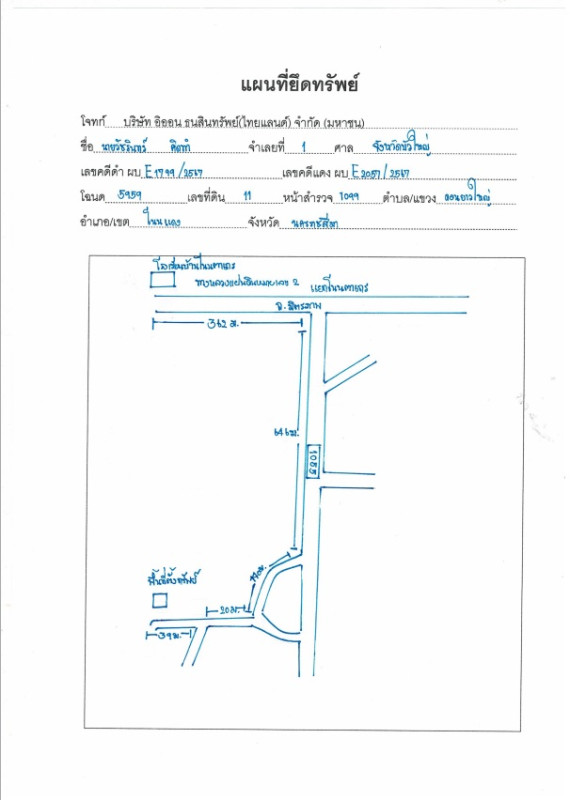 แผนที่ยึดทรัพย์
โจทก์ บริษัท อิออน ธนสินทรัพย์(ไทยแลนด์) จำกัด (มหาชน)
ชื่อ นายวัชรินทร์ จำเลยที่ 1 ศาล จังหวัดบัวใหญ่
เลขคดีดำ ผบ E1799/2567 เลขคดีแดง ผบ E2057/2567
โฉนด 5959 เลขที่ดิน 11 หน้าสำรวจ 1099 ตำบล/แขวง ดอนยาวใหญ่
อำเภอ/เขต โนนแดง จังหวัด นครราชสีมา
โรงเรียนบ้านโนนตาเถร
ทางหลวงแผ่นดินหมายเลข 2 แยกโนนตาเถร
ถ.มิตรภาพ
362 ม.
646 ม.
1088
ที่ตั้งทรัพย์
20 ม.
39 ม.